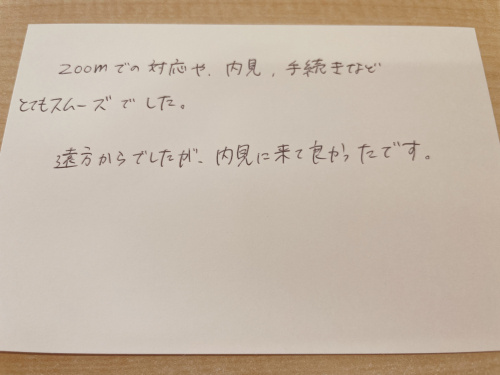 zoomでの対応や、内見、手続きなど
とてもスムーズでした。
遠方からでしたが、内見に来て良かったです。